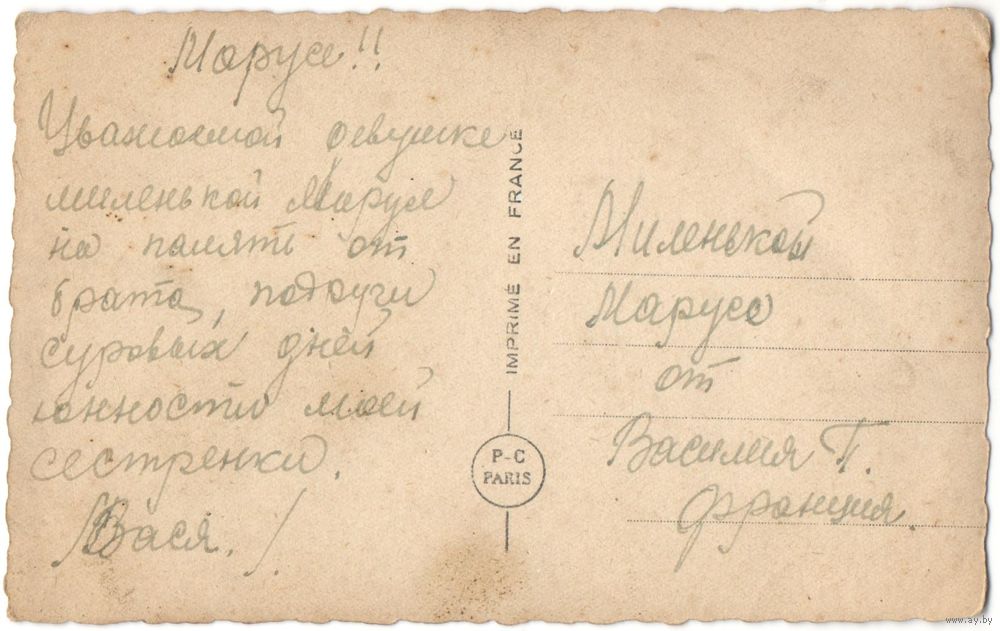 Марусе!!
Уважаемой девушке
миленькой Марусе
на память от
брата, подруги
суровых дней
юнности моей
сестренки.
/Вася./
IMPRIMÉ EN FRANCE
P-C
PARIS
Миленькой
Марусе
от
Василия Г.
Франция.
www.ay.by